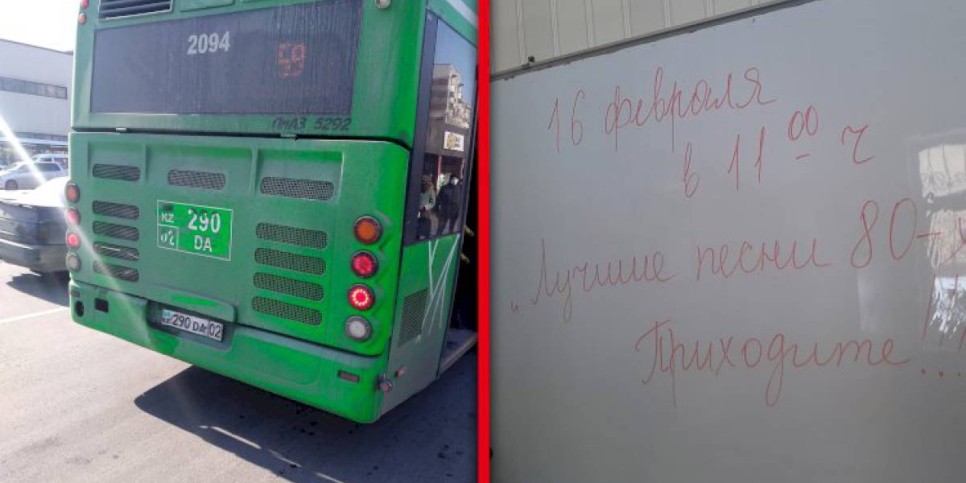 2094
59
ЛиАЗ 5292
KZ 290
02 DA
290 DA 02
16 февраля
в 11 00 ч
„Лучшие песни 80-х
Приходите...